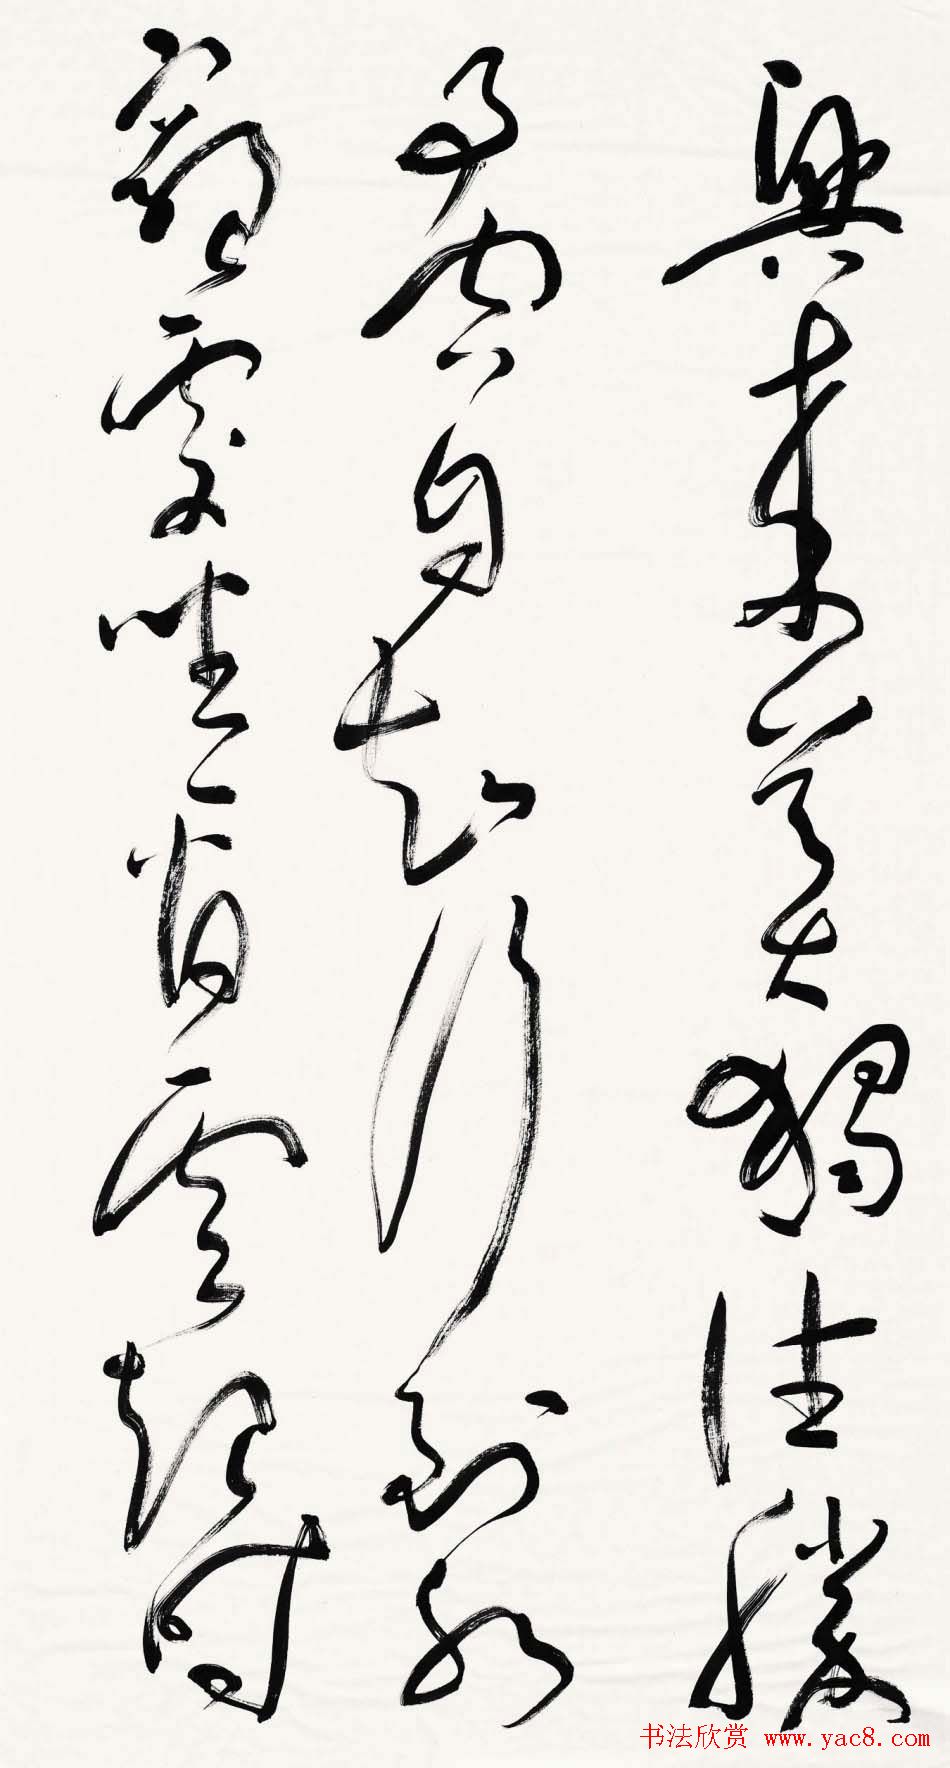 興來美英獨往勝
事空自知行到水
窮處坐看雲起時
书法欣赏 www.yac8.com